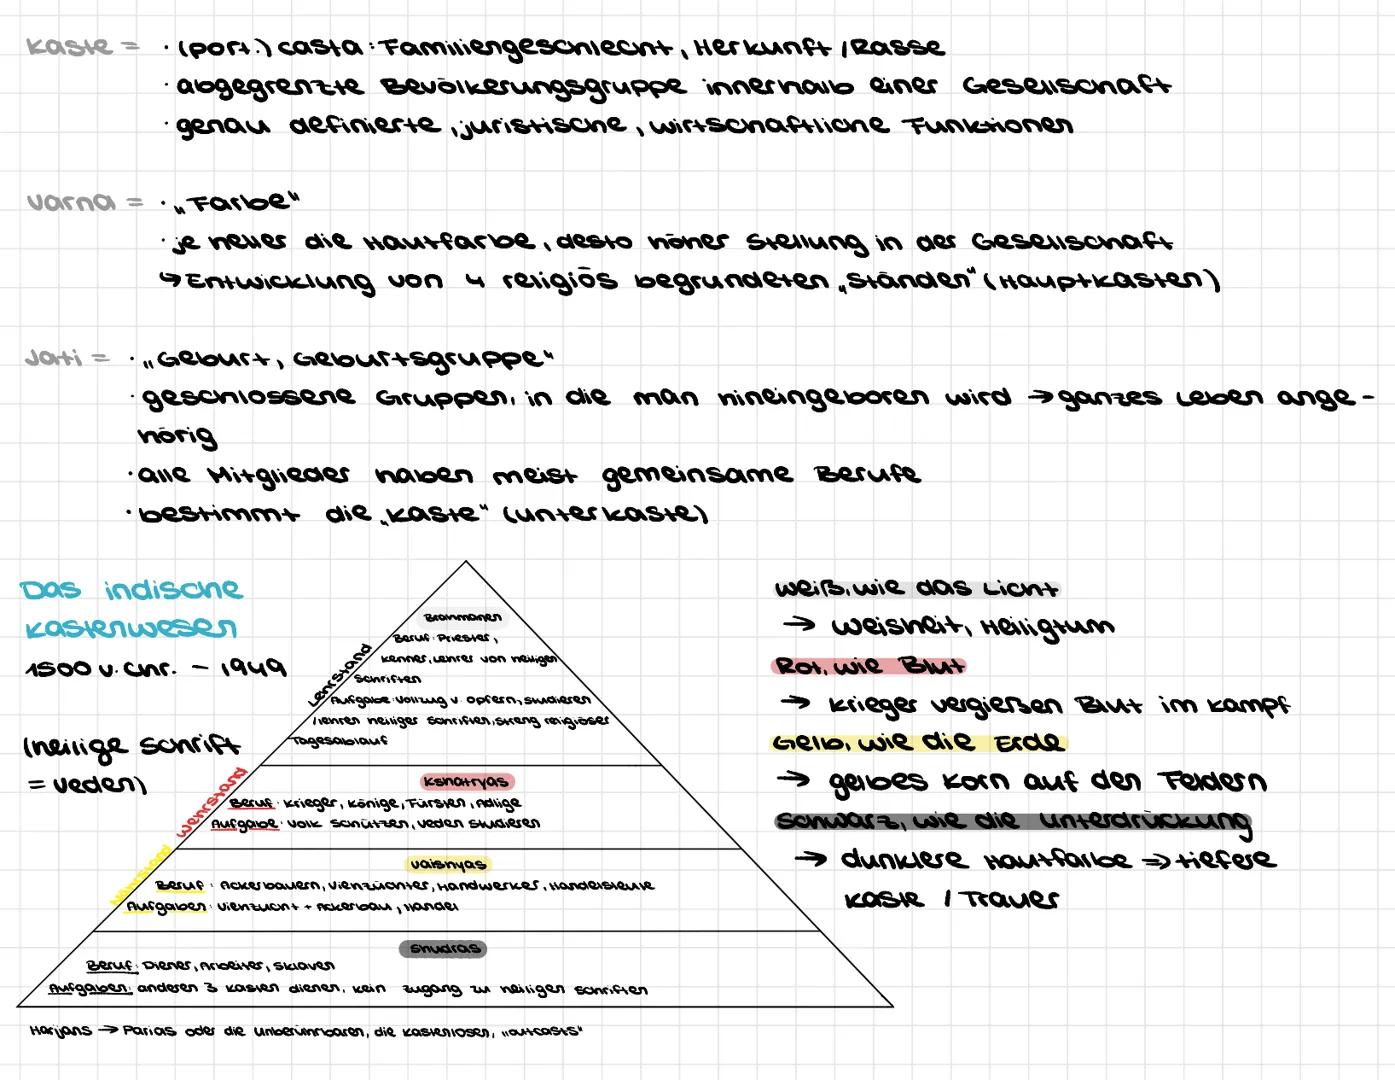 Kaste = · (port.) casta: Familiengeschlecht, Herkunft / Rasse
· abgegrenzte Bevölkerungsgruppe innerhalb einer Gesellschaft
· genau definierte, juristische, wirtschaftliche Funktionen
Varna = · „Farbe"
· je heller die Hautfarbe, desto höher Stellung in der Gesellschaft
↳ Entwicklung von 4 religiös begründeten „Ständen" (Hauptkasten)
Jati = · „Geburt, Geburtsgruppe"
· geschlossene Gruppen, in die man hineingeboren wird → ganzes Leben ange-
hörig
· alle Mitglieder haben meist gemeinsame Berufe
· bestimmt die „Kaste" (Unterkaste)
Das indische
Kastenwesen
1500 v. Chr. - 1949
(heilige Schrift
= Veden)
Lehrstand
Brahmanen
Beruf: Priester,
Kenner, Lehrer von heiligen
Schriften
Aufgabe: Vollzug v. Opfern, studieren
/lehren heiliger Schriften, streng religiöser
Tagesablauf
Wehrstand
Kshatryas
Beruf: Krieger, Könige, Fürsten, Adlige
Aufgabe: Volk schützen, Veden studieren
Nährstand
Vaishyas
Beruf: Ackerbauern, Viehzüchter, Handwerker, Handelsleute
Aufgaben: Viehzucht + Ackerbau, Handel
Shudras
Beruf: Diener, Arbeiter, Sklaven
Aufgaben: anderen 3 Kasten dienen, kein Zugang zu heiligen Schriften
Harjans → Parias oder die Unberührbaren, die Kastenlosen, „outcasts"
Weiß, wie das Licht
→ Weisheit, Heiligtum
Rot, wie Blut
→ Krieger vergießen Blut im Kampf
Gelb, wie die Erde
→ gelbes Korn auf den Feldern
Schwarz, wie die Unterdrückung
→ dunklere Hautfarbe => tiefere
Kaste / Trauer